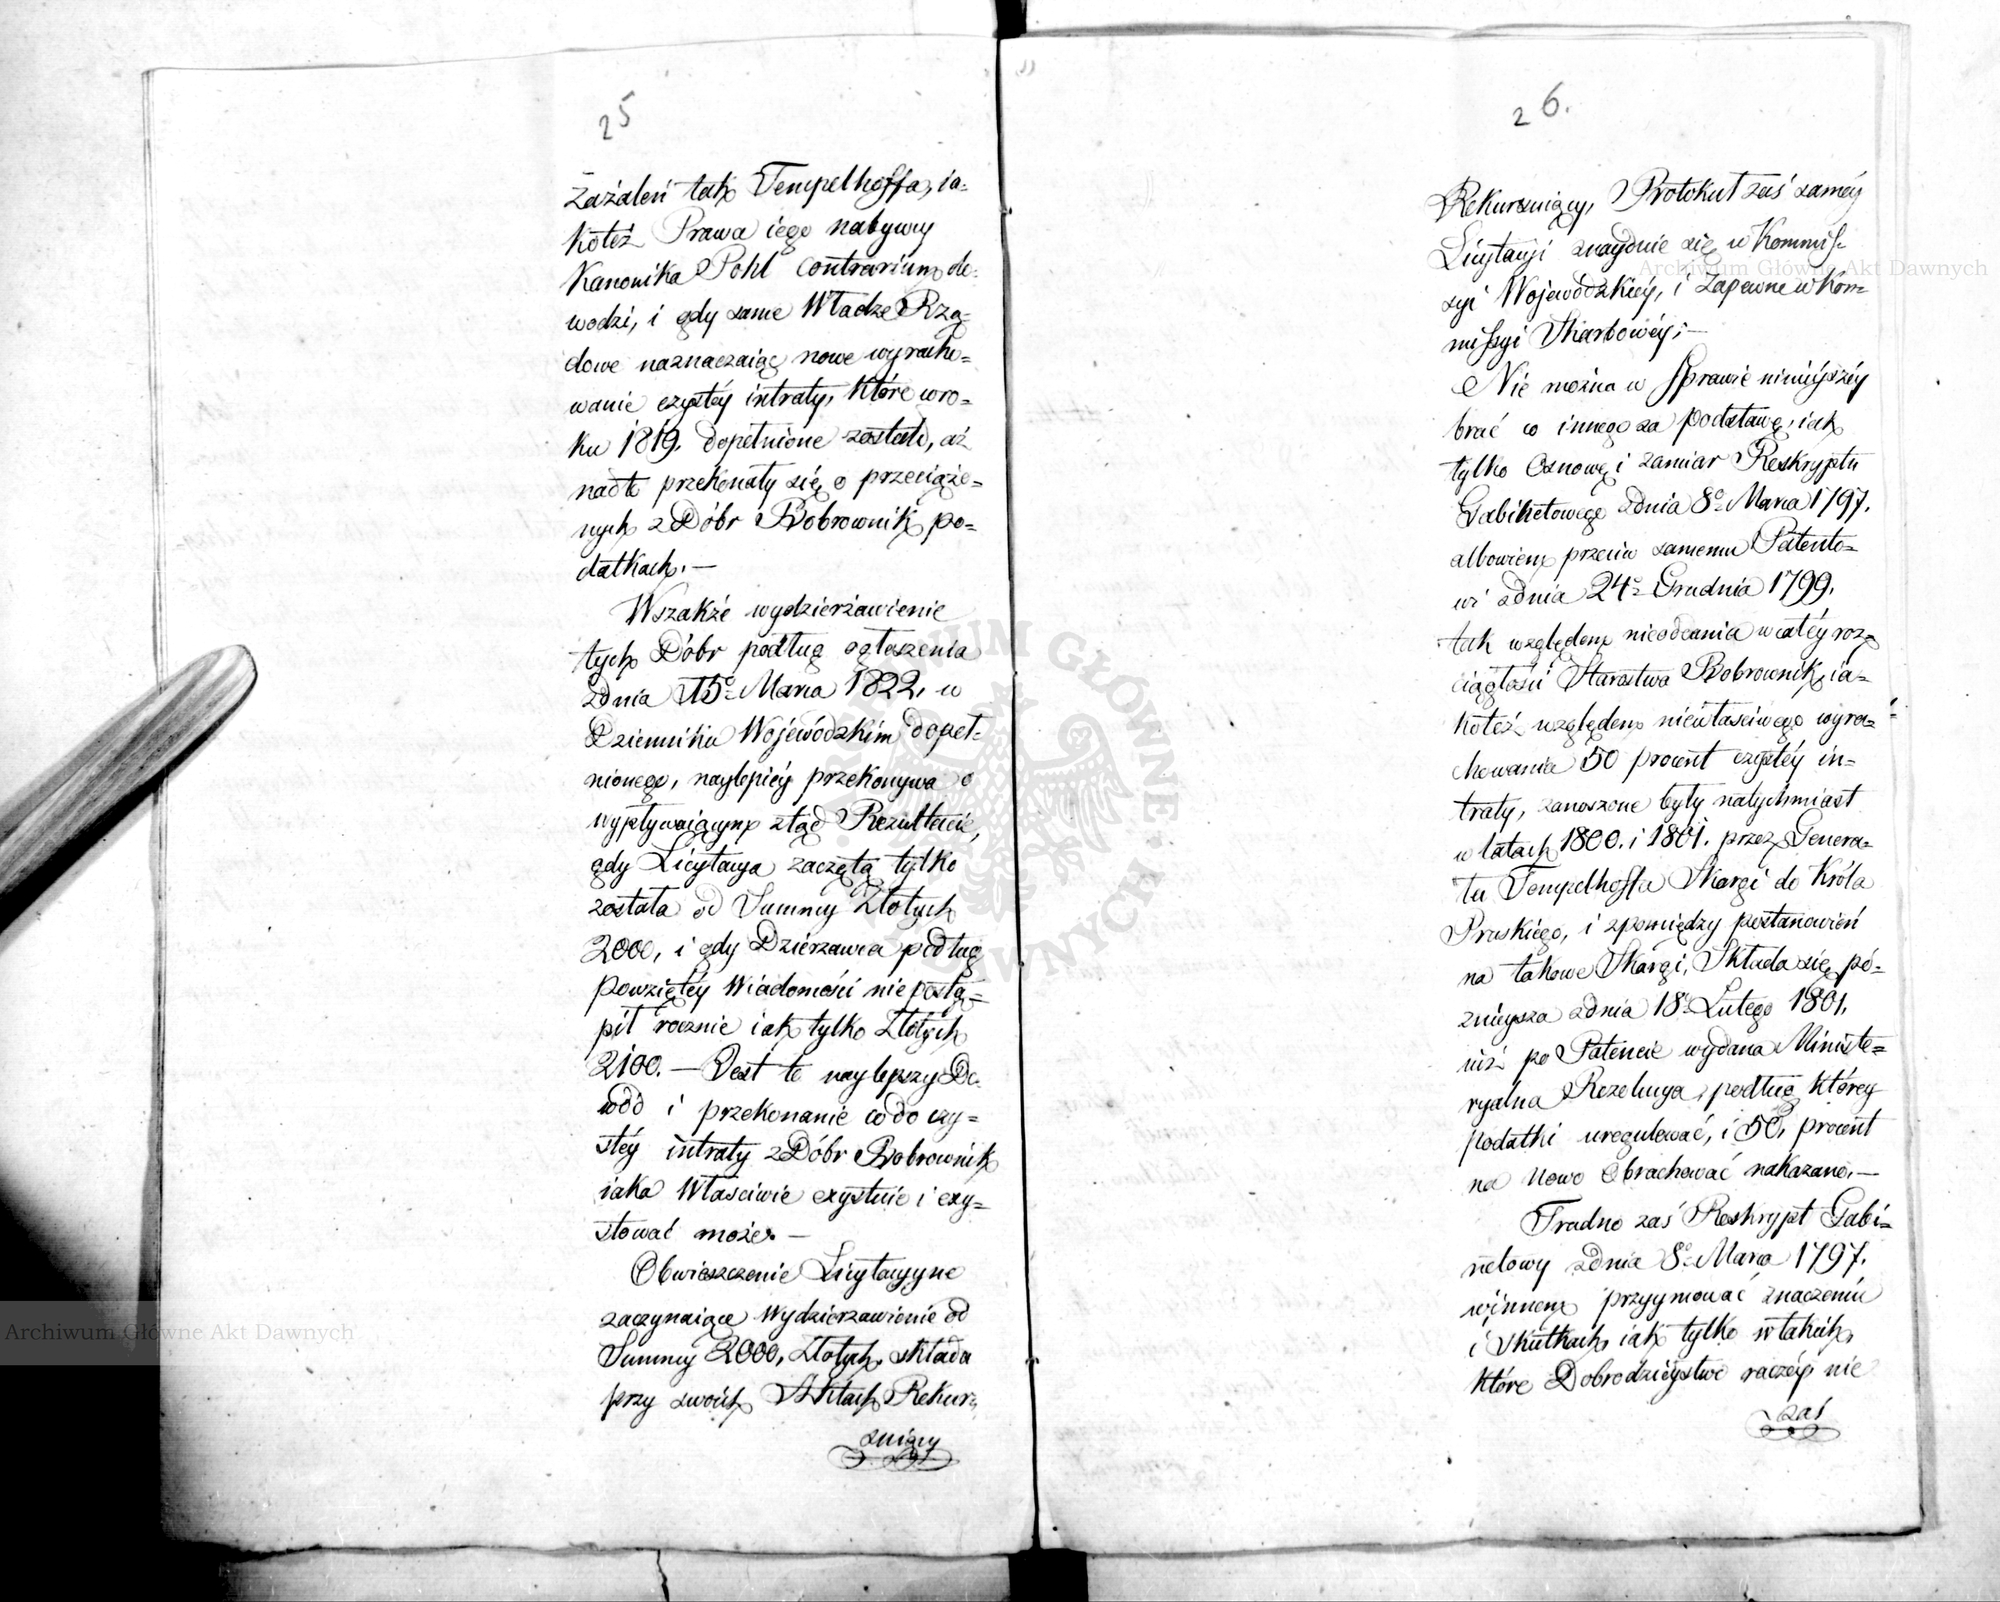 25
Zażaleń tak Tempelhoffa, ia-
koteż Prawa iego nabywcy
Kanonika Pohl contrarium do-
wodzi, i gdy same Władze Rzą-
dowe naznaczaiąc nowe wyracho-
wanie czystéy intraty, które w ro-
ku 1819. dopełnione zostało, aż
nadto przekonały się o przeciąże-
nych z Dóbr Bobrownik po-
datkach. —
Wszakże wydzierżawienie
tych Dóbr podług ogłoszenia
zdnia 15º Marca 1822. w
Dzienniku Wojewódzkim dopeł-
nionego, naylepiéy przekonywa o
wypływaiącym ztąd Rezultacie,
gdy Licytacya zaczętą tylko
została od Summy Złotych
2000, i gdy Dzierzawca podług
powziętéy Wiadomości nie postą-
pił rocznie iak tylko Złotych
2100. — Jest to naylepszy Do-
wód i przekonanie co do czy-
stéy intraty z Dóbr Bobrownik
iaka Właściwie exystuie i exy-
stować może. —
Obwieszczenie Licytacyyne
zaczynaiące Wydzierzawienie od
Summy 2000, Złotych, składa
przy swoich Aktach Rekur-
suiący
26.
Rekursuiący, Protokuł zaś saméy
Licytacyi znayduie się w Kommis-
syi Wojewódzkiéy, i Zapewne w Kom-
missyi Skarbowéy; —
Nie można w Sprawie ninieyszéy
brać co innego za podstawę, iak
tylko Osnowę i zamiar Reskryptu
Gabinetowego zdnia 8º Marca 1797.
albowiem przeciw samemu Patento-
wi zdnia 24º Grudnia 1799.
tak względem nieoddania w całéy roz-
ciągłości Starostwa Bobrownik, ia-
koteż względem niewłaściwego wyra-
chowania 50 procent czystéy in-
traty, zanoszone były natychmiast
w latach 1800. i 1801. przez Genera-
ła Tempelhoffa Skargi do Króla
Pruskiego, i zpomiędzy postanowień
na takowe Skargi, Składa się pó-
źnieysza zdnia 18º Lutego 1801.
niż po Patencie wydana Ministe-
ryalna Rezolucya, podług którey
podatki uregulować, i 50, procent
na nowo Obrachować nakazano. —
Trudno zaś Reskrypt Gabi-
netowy zdnia 8º Marca 1797.
w innem przyymować znaczeniu
i Skutkach, iak tylko w takich,
które Dobrodzieystwo raczéy nie
zaś
Archiwum Główne Akt Dawnych
Archiwum Główne Akt Dawnych
ARCHIWUM GŁÓWNE AKT DAWNYCH